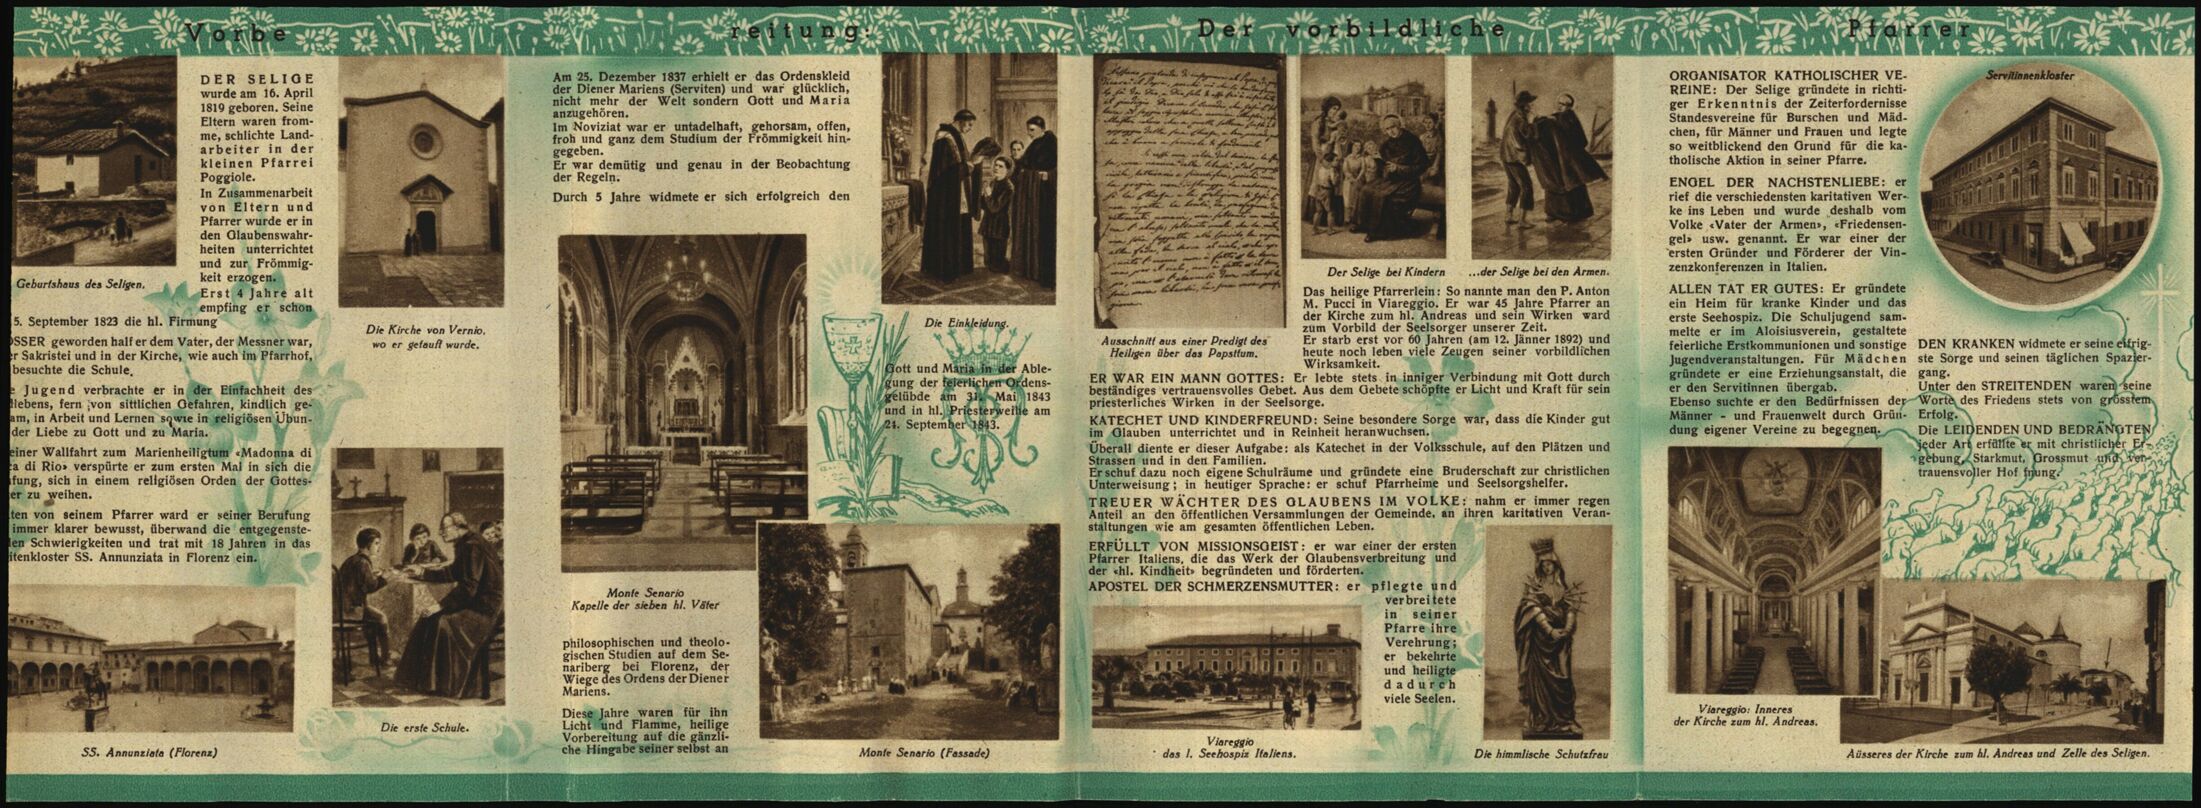 Vorbe reitung: Der vorbildliche Pfarrer
DER SELIGE
wurde am 16. April
1819 geboren. Seine
Eltern waren from-
me, schlichte Land-
arbeiter in der
kleinen Pfarrei
Poggiole.
In Zusammenarbeit
von Eltern und
Pfarrer wurde er in
den Glaubenswahr-
heiten unterrichtet
und zur Frömmig-
keit erzogen.
Erst 4 Jahre alt
empfing er schon
5. September 1823 die hl. Firmung
OSSER geworden half er dem Vater, der Messner war,
er Sakristei und in der Kirche, wie auch im Pfarrhof,
besuchte die Schule.
e Jugend verbrachte er in der Einfachheit des
llebens, fern von sittlichen Gefahren, kindlich ge-
am, in Arbeit und Lernen sowie in religiösen Übun-
der Liebe zu Gott und zu Maria.
einer Wallfahrt zum Marienheiligtum «Madonna di
ca di Rio» verspürte er zum ersten Mal in sich die
fung, sich in einem religiösen Orden der Gottes-
er zu weihen.
ten von seinem Pfarrer ward er seiner Berufung
immer klarer bewusst, überwand die entgegenste-
en Schwierigkeiten und trat mit 18 Jahren in das
itenkloster SS. Annunziata in Florenz ein.
Geburtshaus des Seligen.
Die Kirche von Vernio,
wo er getauft wurde.
Die erste Schule.
SS. Annunziata (Florenz)
Am 25. Dezember 1837 erhielt er das Ordenskleid
der Diener Mariens (Serviten) und war glücklich,
nicht mehr der Welt sondern Gott und Maria
anzugehören.
Im Noviziat war er untadelhaft, gehorsam, offen,
froh und ganz dem Studium der Frömmigkeit hin-
gegeben.
Er war demütig und genau in der Beobachtung
der Regeln.
Durch 5 Jahre widmete er sich erfolgreich den
Monte Senario
Kapelle der sieben hl. Väter
philosophischen und theolo-
gischen Studien auf dem Se-
nariberg bei Florenz, der
Wiege des Ordens der Diener
Mariens.
Diese Jahre waren für ihn
Licht und Flamme, heilige
Vorbereitung auf die gänzli-
che Hingabe seiner selbst an
Die Einkleidung.
Gott und Maria in der Able-
gung der feierlichen Ordens-
gelübde am 31. Mai 1843
und in hl. Priesterweihe am
24. September 1843.
Monte Senario (Fassade)
Ausschnitt aus einer Predigt des
Heiligen über das Papsttum.
Der Selige bei Kindern
...der Selige bei den Armen.
Das heilige Pfarrerlein: So nannte man den P. Anton
M. Pucci in Viareggio. Er war 45 Jahre Pfarrer an
der Kirche zum hl. Andreas und sein Wirken ward
zum Vorbild der Seelsorger unserer Zeit.
Er starb erst vor 60 Jahren (am 12. Jänner 1892) und
heute noch leben viele Zeugen seiner vorbildlichen
Wirksamkeit.
ER WAR EIN MANN GOTTES: Er lebte stets in inniger Verbindung mit Gott durch
beständiges vertrauensvolles Gebet. Aus dem Gebete schöpfte er Licht und Kraft für sein
priesterliches Wirken in der Seelsorge.
KATECHET UND KINDERFREUND: Seine besondere Sorge war, dass die Kinder gut
im Glauben unterrichtet und in Reinheit heranwuchsen.
Überall diente er dieser Aufgabe: als Katechet in der Volksschule, auf den Plätzen und
Strassen und in den Familien.
Er schuf dazu noch eigene Schulräume und gründete eine Bruderschaft zur christlichen
Unterweisung; in heutiger Sprache: er schuf Pfarrheime und Seelsorgshelfer.
TREUER WÄCHTER DES GLAUBENS IM VOLKE: nahm er immer regen
Anteil an den öffentlichen Versammlungen der Gemeinde, an ihren karitativen Veran-
staltungen wie am gesamten öffentlichen Leben.
ERFÜLLT VON MISSIONSGEIST: er war einer der ersten
Pfarrer Italiens, die das Werk der Glaubensverbreitung und
der «hl. Kindheit» begründeten und förderten.
APOSTEL DER SCHMERZENSMUTTER: er pflegte und
verbreitete
in seiner
Pfarre ihre
Verehrung;
er bekehrte
und heiligte
dadurch
viele Seelen.
Viareggio
das I. Seehospiz Italiens.
Die himmlische Schutzfrau
ORGANISATOR KATHOLISCHER VE-
REINE: Der Selige gründete in richti-
ger Erkenntnis der Zeiterfordernisse
Standesvereine für Burschen und Mäd-
chen, für Männer und Frauen und legte
so weitblickend den Grund für die ka-
tholische Aktion in seiner Pfarre.
ENGEL DER NACHSTENLIEBE: er
rief die verschiedensten karitativen Wer-
ke ins Leben und wurde deshalb vom
Volke «Vater der Armen», «Friedensen-
gel» usw. genannt. Er war einer der
ersten Gründer und Förderer der Vin-
zenzkonferenzen in Italien.
ALLEN TAT ER GUTES: Er gründete
ein Heim für kranke Kinder und das
erste Seehospiz. Die Schuljugend sam-
melte er im Aloisiusverein, gestaltete
feierliche Erstkommunionen und sonstige
Jugendveranstaltungen. Für Mädchen
gründete er eine Erziehungsanstalt, die
er den Servitinnen übergab.
Ebenso suchte er den Bedürfnissen der
Männer - und Frauenwelt durch Grün-
dung eigener Vereine zu begegnen.
Servitinnenkloster
DEN KRANKEN widmete er seine eifrig-
ste Sorge und seinen täglichen Spazier-
gang.
Unter den STREITENDEN waren seine
Worte des Friedens stets von grösstem
Erfolg.
Die LEIDENDEN UND BEDRÄNGTEN
jeder Art erfüllte er mit christlicher Er-
gebung, Starkmut, Grossmut und ver-
trauensvoller Hoffnung.
Viareggio: Inneres
der Kirche zum hl. Andreas.
Aüsseres der Kirche zum hl. Andreas und Zelle des Seligen.